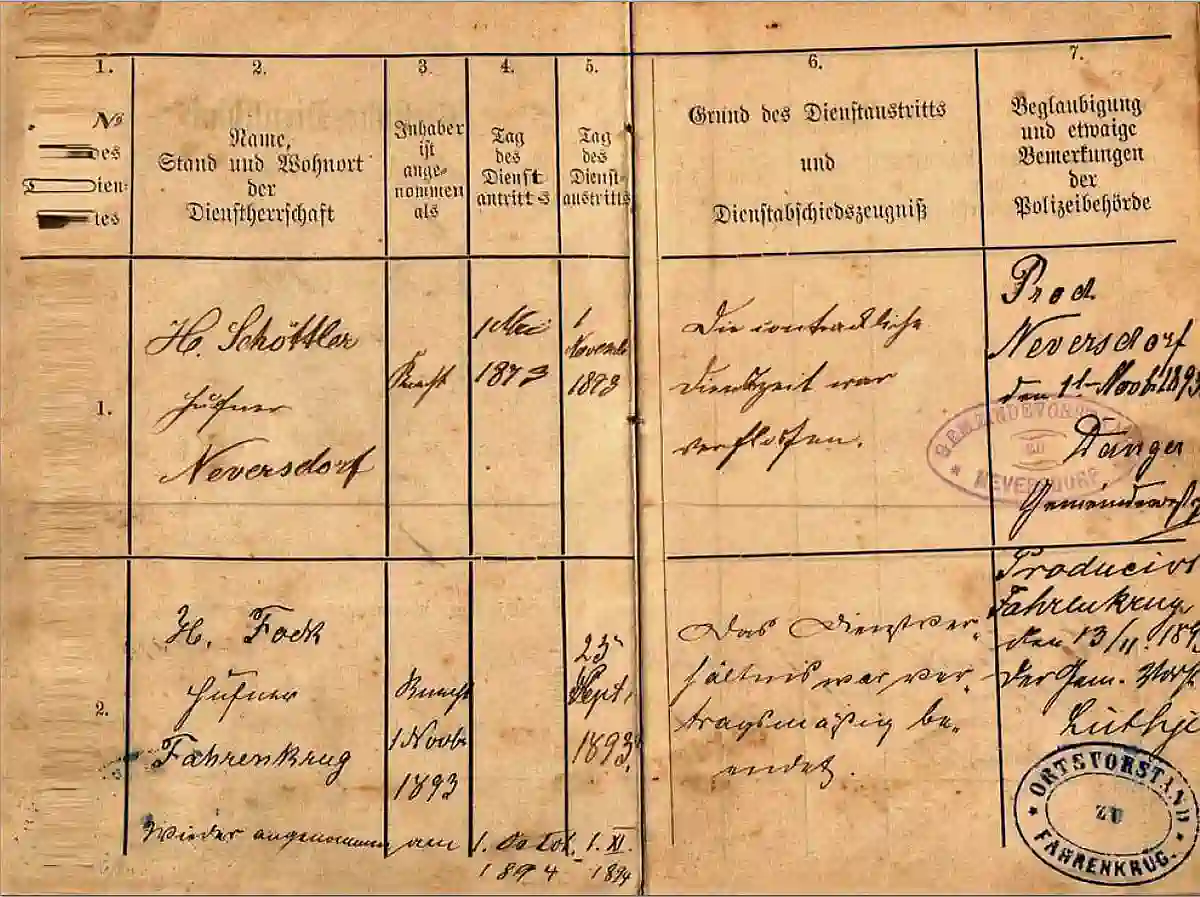 1.
№
des
Dien-
tes
2.
Name,
Stand und Wohnort
der
Dienstherrschaft
3.
Inhaber
ist
ange-
nommen
als
4.
Tag
des
Dienst
antritts
5.
Tag
des
Dienst-
austritts
6.
Grund des Dienstaustritts
und
Dienstabschiedszeugniß
7.
Beglaubigung
und etwaige
Bemerkungen
der
Polizeibehörde
1.
H. Schöttler
Hufner
Neversdorf
Knecht
1 Mai
1893
1
Novembr
1893
Die contractliche
Dienstzeit war
verflossen.
Prod.
Neversdorf
den 1t Novbr 1893
Danger
Gemeindevorst
GEMEINDEVORSTAND
ZU
NEVERSDORF
2.
H. Fock
Hufner
Fahrenkrug
Knecht
1 Novbr
1893
25
Sept.
1893.
Das Dienstver-
hältnis war ver-
tragsmäßig be-
endet.
Fahrenkrug
den 13/11. 189
Der Gem. Vorst
Lüthje
ORTSVORSTAND
ZU
FAHRENKRUG.
Wieder angenommen am 1. Octob. 1. XI.
1894 1894